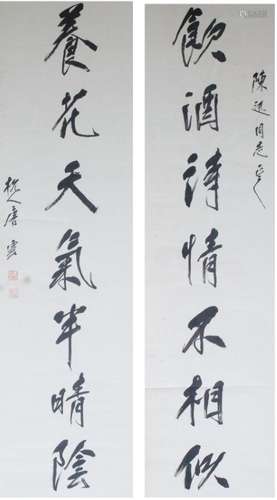 陳迅同志正之
飲酒詩情不相似
養花天氣半晴陰
杭人唐雲